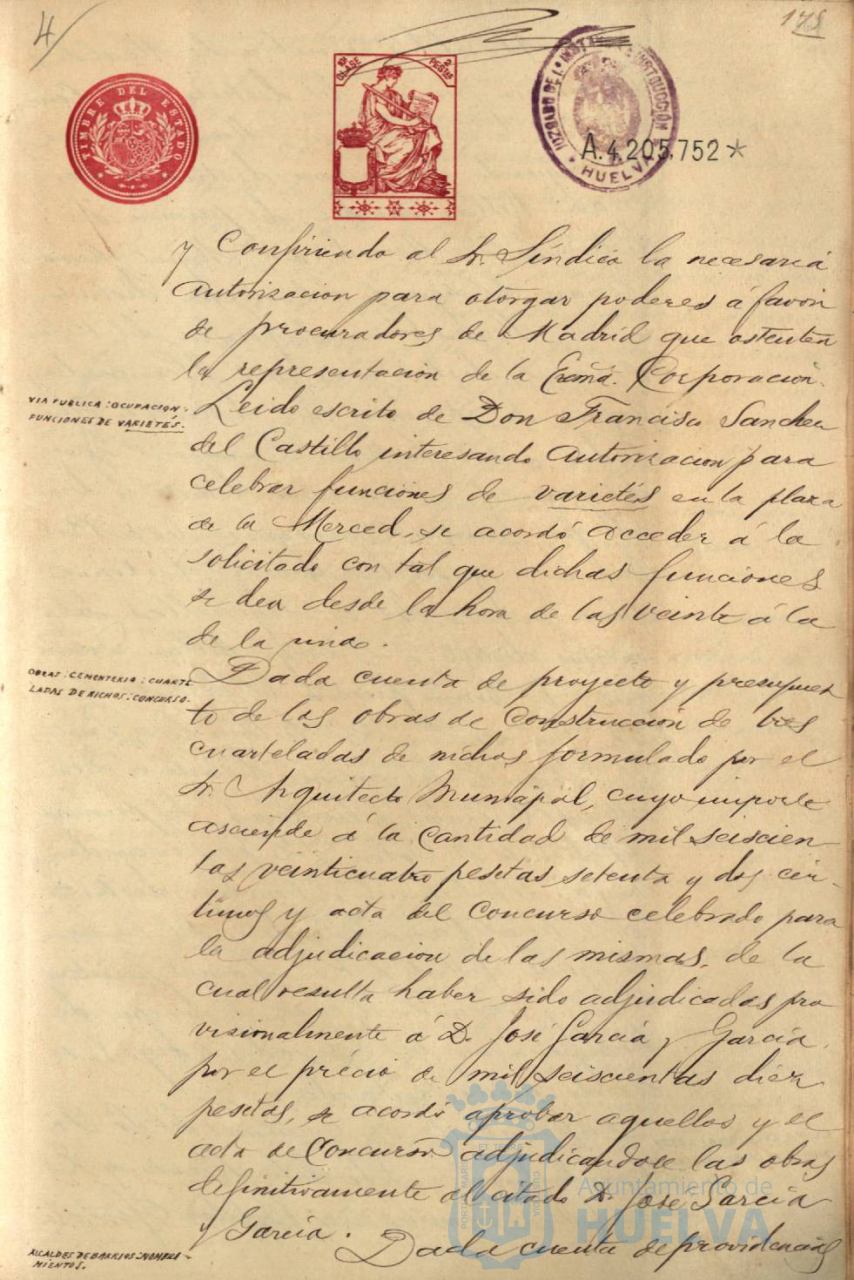 4
178
TIMBRE DEL ESTADO
10ª CLASE
2 PESTAS
JUZGADO DE 1ª INSTANCIA E INSTRUCCIÓN
HUELVA
A.4.205,752*
y Confiriendo al Sr. Síndico la necesaria
autorizacion para otorgar poderes á favor
de procuradores de Madrid que ostenten
la representacion de la Excmá. Corporacion.
VIA PUBLICA: OCUPACION:
FUNCIONES DE VARIETÉS.
Leido escrito de Don Francisco Sanchez
del Castillo interesando autorizacion para
celebrar funciones de varietés en la plaza
de la Merced, se acordó acceder á lo
solicitado con tal que dichas funciones
se den desde la hora de las veinte á la
de la una.
OBRAS: CEMENTERIO: CUARTE
LADAS DE NICHOS: CONCURSO.
Dada cuenta de proyecto y presupues
to de las obras de construccion de tres
cuarteladas de nichos formulado por el
Sr. Arquitecto Municipal, cuyo importe
asciende á la cantidad de mil seiscien-
tas veinticuatro pesetas setenta y dos cén-
timos y acta del concurso celebrado para
la adjudicacion de las mismas, de la
cual resulta haber sido adjudicadas pro
visionalmente á D. José García y García,
por el précio de mil seiscientas diez
pesetas, se acordó aprobar aquellos y el
acta de Concurso adjudicandose las obras
definitivamente al citado D. José García
y García.
ALCALDES DE BARRIOS: NOMBRA
MIENTOS.
Dada cuenta de providencias
Ayuntamiento de
HUELVA